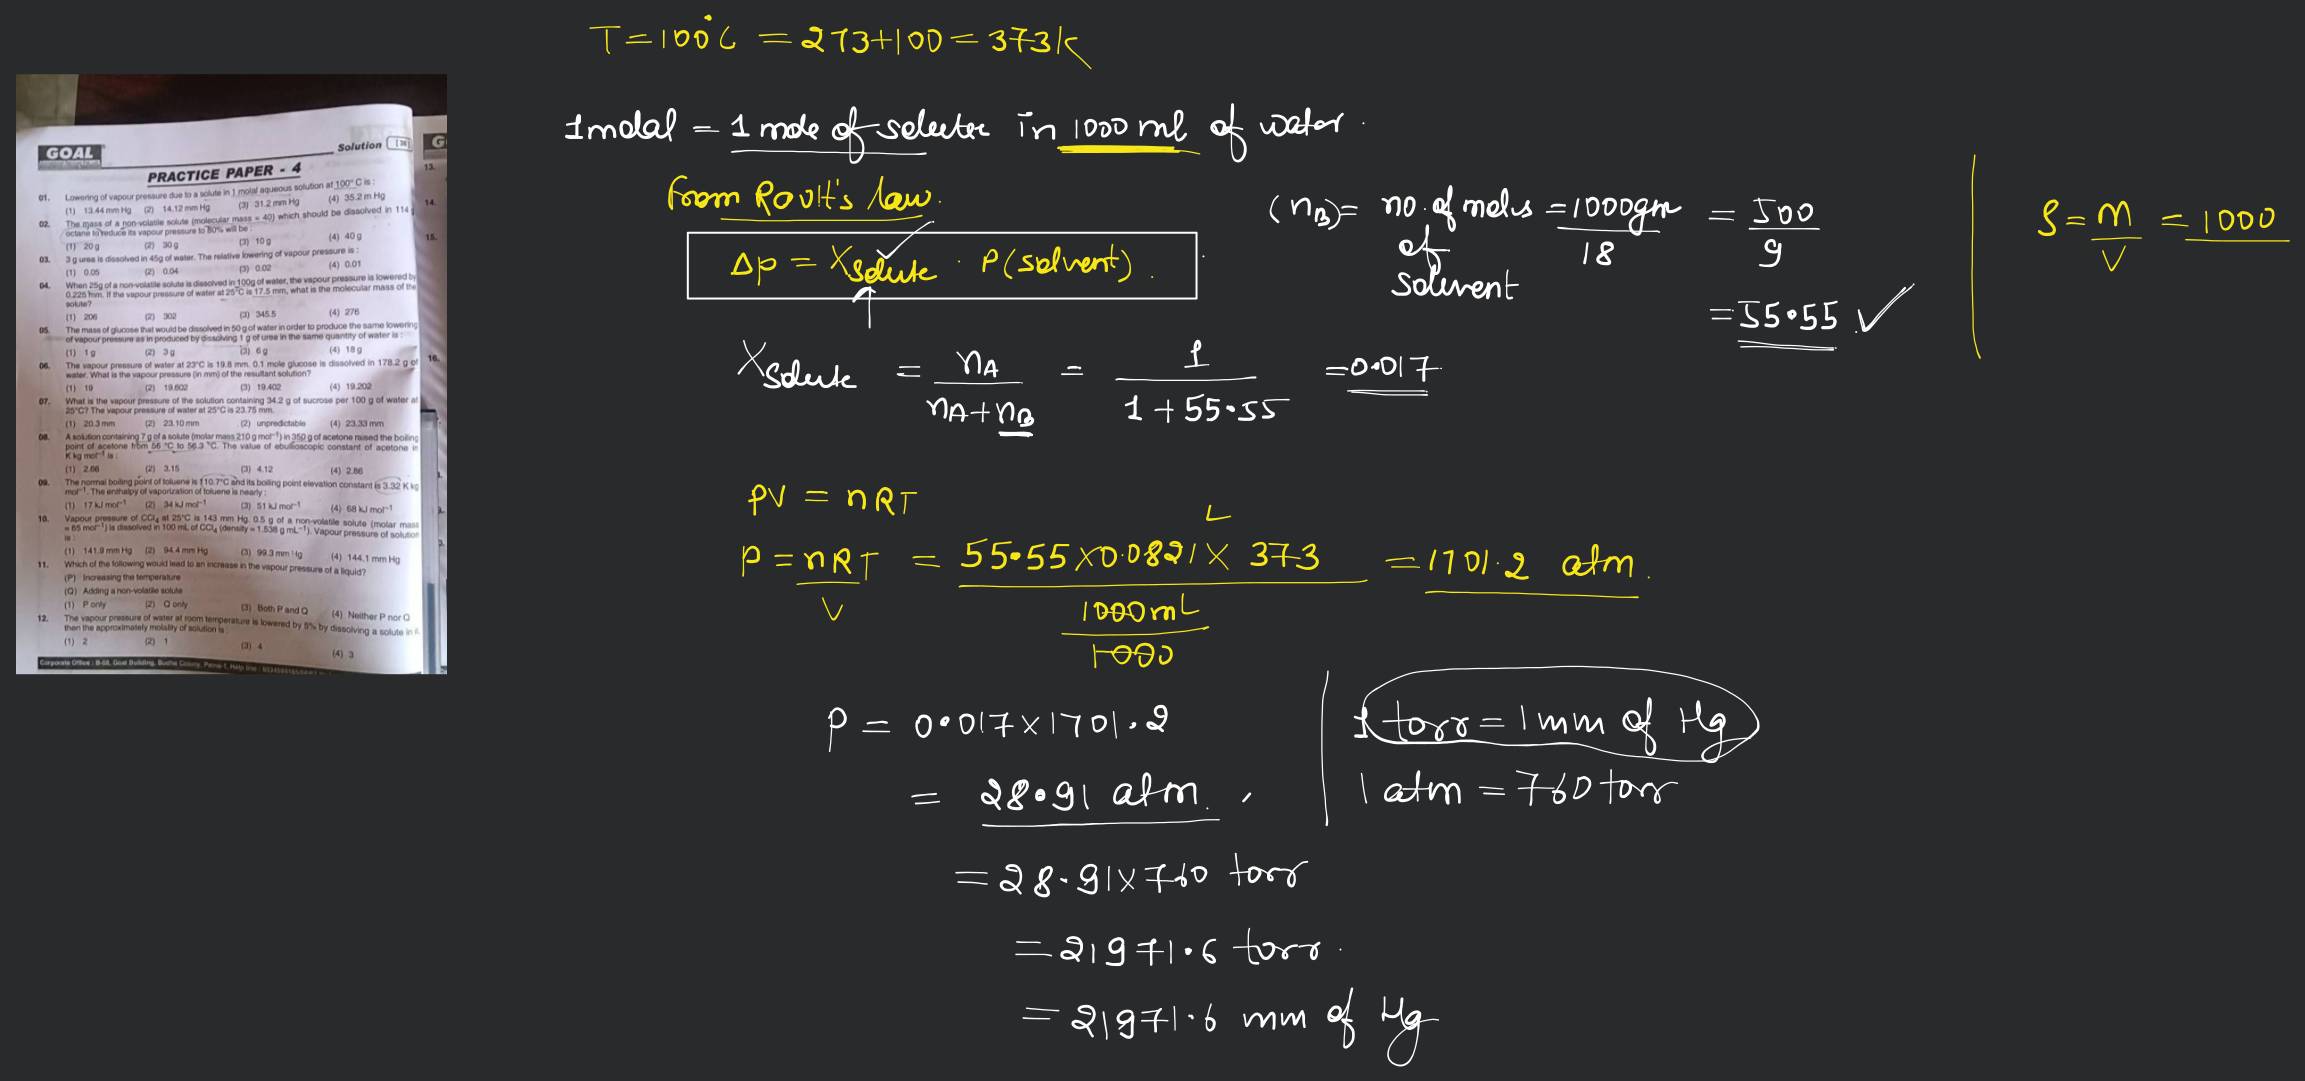 T = 100°C = 273+100 = 373K
1 molal = 1 mole of solute in 1000 ml of water.
from Roult's law.
Δp = Xsolute . P(solvent).
(nB) = no. of moles of solvent = 1000gm / 18 = 500 / 9
= 55.55 ✓
S = m / V = 1000
Xsolute = nA / nA+nB = 1 / 1+55.55 = 0.017
PV = nRT
P = nRT / V = 55.55 x 0.0821 x 373 / 1000mL / 1000 = 1701.2 atm.
L
P = 0.017 x 1701.2
= 28.91 atm.
1 torr = 1 mm of Hg
1 atm = 760 torr
= 28.91 x 760 torr
= 21971.6 torr.
= 21971.6 mm of Hg
GOAL
Solution
PRACTICE PAPER - 4
01. Lowering of vapour pressure due to a solute in 1 molal aqueous solution at 100° C is :
(1) 13.44 mm Hg (2) 14.12 mm Hg (3) 31.2 mm Hg (4) 35.2 m Hg
02. The mass of a non-volatile solute (molecular mass = 40) which should be dissolved in 114
octane to reduce its vapour pressure to 80% will be :
(1) 20 g (2) 30 g (3) 10 g (4) 40 g
03. 3 g urea is dissolved in 45g of water. The relative lowering of vapour pressure is :
(1) 0.05 (2) 0.04 (3) 0.02 (4) 0.01
04. When 25g of a non-volatile solute is dissolved in 100g of water, the vapour pressure is lowered by
0.225 mm. If the vapour pressure of water at 25°C is 17.5 mm, what is the molecular mass of the
solute?
(1) 206 (2) 302 (3) 345.5 (4) 276
05. The mass of glucose that would be dissolved in 50 g of water in order to produce the same lowering
of vapour pressure as in produced by dissolving 1 g of urea in the same quantity of water is :
(1) 1 g (2) 3 g (3) 6 g (4) 18 g
06. The vapour pressure of water at 23°C is 19.8 mm. 0.1 mole glucose is dissolved in 178.2 g of
water. What is the vapour pressure (in mm) of the resultant solution?
(1) 19 (2) 19.602 (3) 19.402 (4) 19.202
07. What is the vapour pressure of the solution containing 34.2 g of sucrose per 100 g of water at
25°C? The vapour pressure of water at 25°C is 23.75 mm.
(1) 20.3 mm (2) 23.10 mm (2) unpredictable (4) 23.33 mm
08. A solution containing 7 g of a solute (molar mass 210 g mol⁻¹) in 350 g of acetone raised the boiling
point of acetone from 56 °C to 56.3 °C. The value of ebullioscopic constant of acetone in
K kg mol⁻¹ is :
(1) 2.66 (2) 3.15 (3) 4.12 (4) 2.86
09. The normal boiling point of toluene is 110.7°C and its boiling point elevation constant is 3.32 K kg
mol⁻¹. The enthalpy of vaporization of toluene is nearly :
(1) 17 kJ mol⁻¹ (2) 34 kJ mol⁻¹ (3) 51 kJ mol⁻¹ (4) 68 kJ mol⁻¹
10. Vapour pressure of CCl₄ at 25°C is 143 mm Hg. 0.5 g of a non-volatile solute (molar mass
= 65 mol⁻¹) is dissolved in 100 mL of CCl₄ (density = 1.538 g mL⁻¹). Vapour pressure of solution
is :
(1) 141.9 mm Hg (2) 94.4 mm Hg (3) 99.3 mm Hg (4) 144.1 mm Hg
11. Which of the following would lead to an increase in the vapour pressure of a liquid?
(P) Increasing the temperature
(Q) Adding a non-volatile solute
(1) P only (2) Q only (3) Both P and Q (4) Neither P nor Q
12. The vapour pressure of water at room temperature is lowered by 5% by dissolving a solute in it,
then the approximately molality of solution is :
(1) 2 (2) 1 (3) 4 (4) 3
G
13.
14.
15.
16.